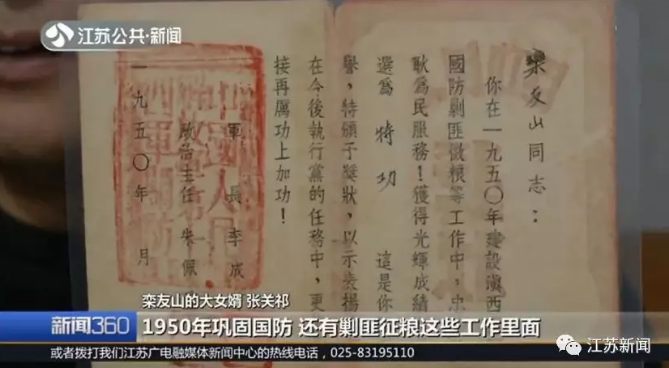 江苏公共·新闻
栾友山同志：
你在一九五〇年建設滇西
國防剿匪徵粮等工作中，忠
耿爲民服務！獲得光輝成績
選爲 特功 這是你
譽，特頒予獎狀，以示表揚
在今後執行黨的任務中，更
接再厲功上加功！
軍長 李成
政治主任 朱佩
一九五〇年 月
栾友山的大女婿 张关祁
新闻360
1950年巩固国防 还有剿匪征粮这些工作里面
或者拨打我们江苏广电融媒体新闻中心的热线电话，025-83195110
江苏新闻